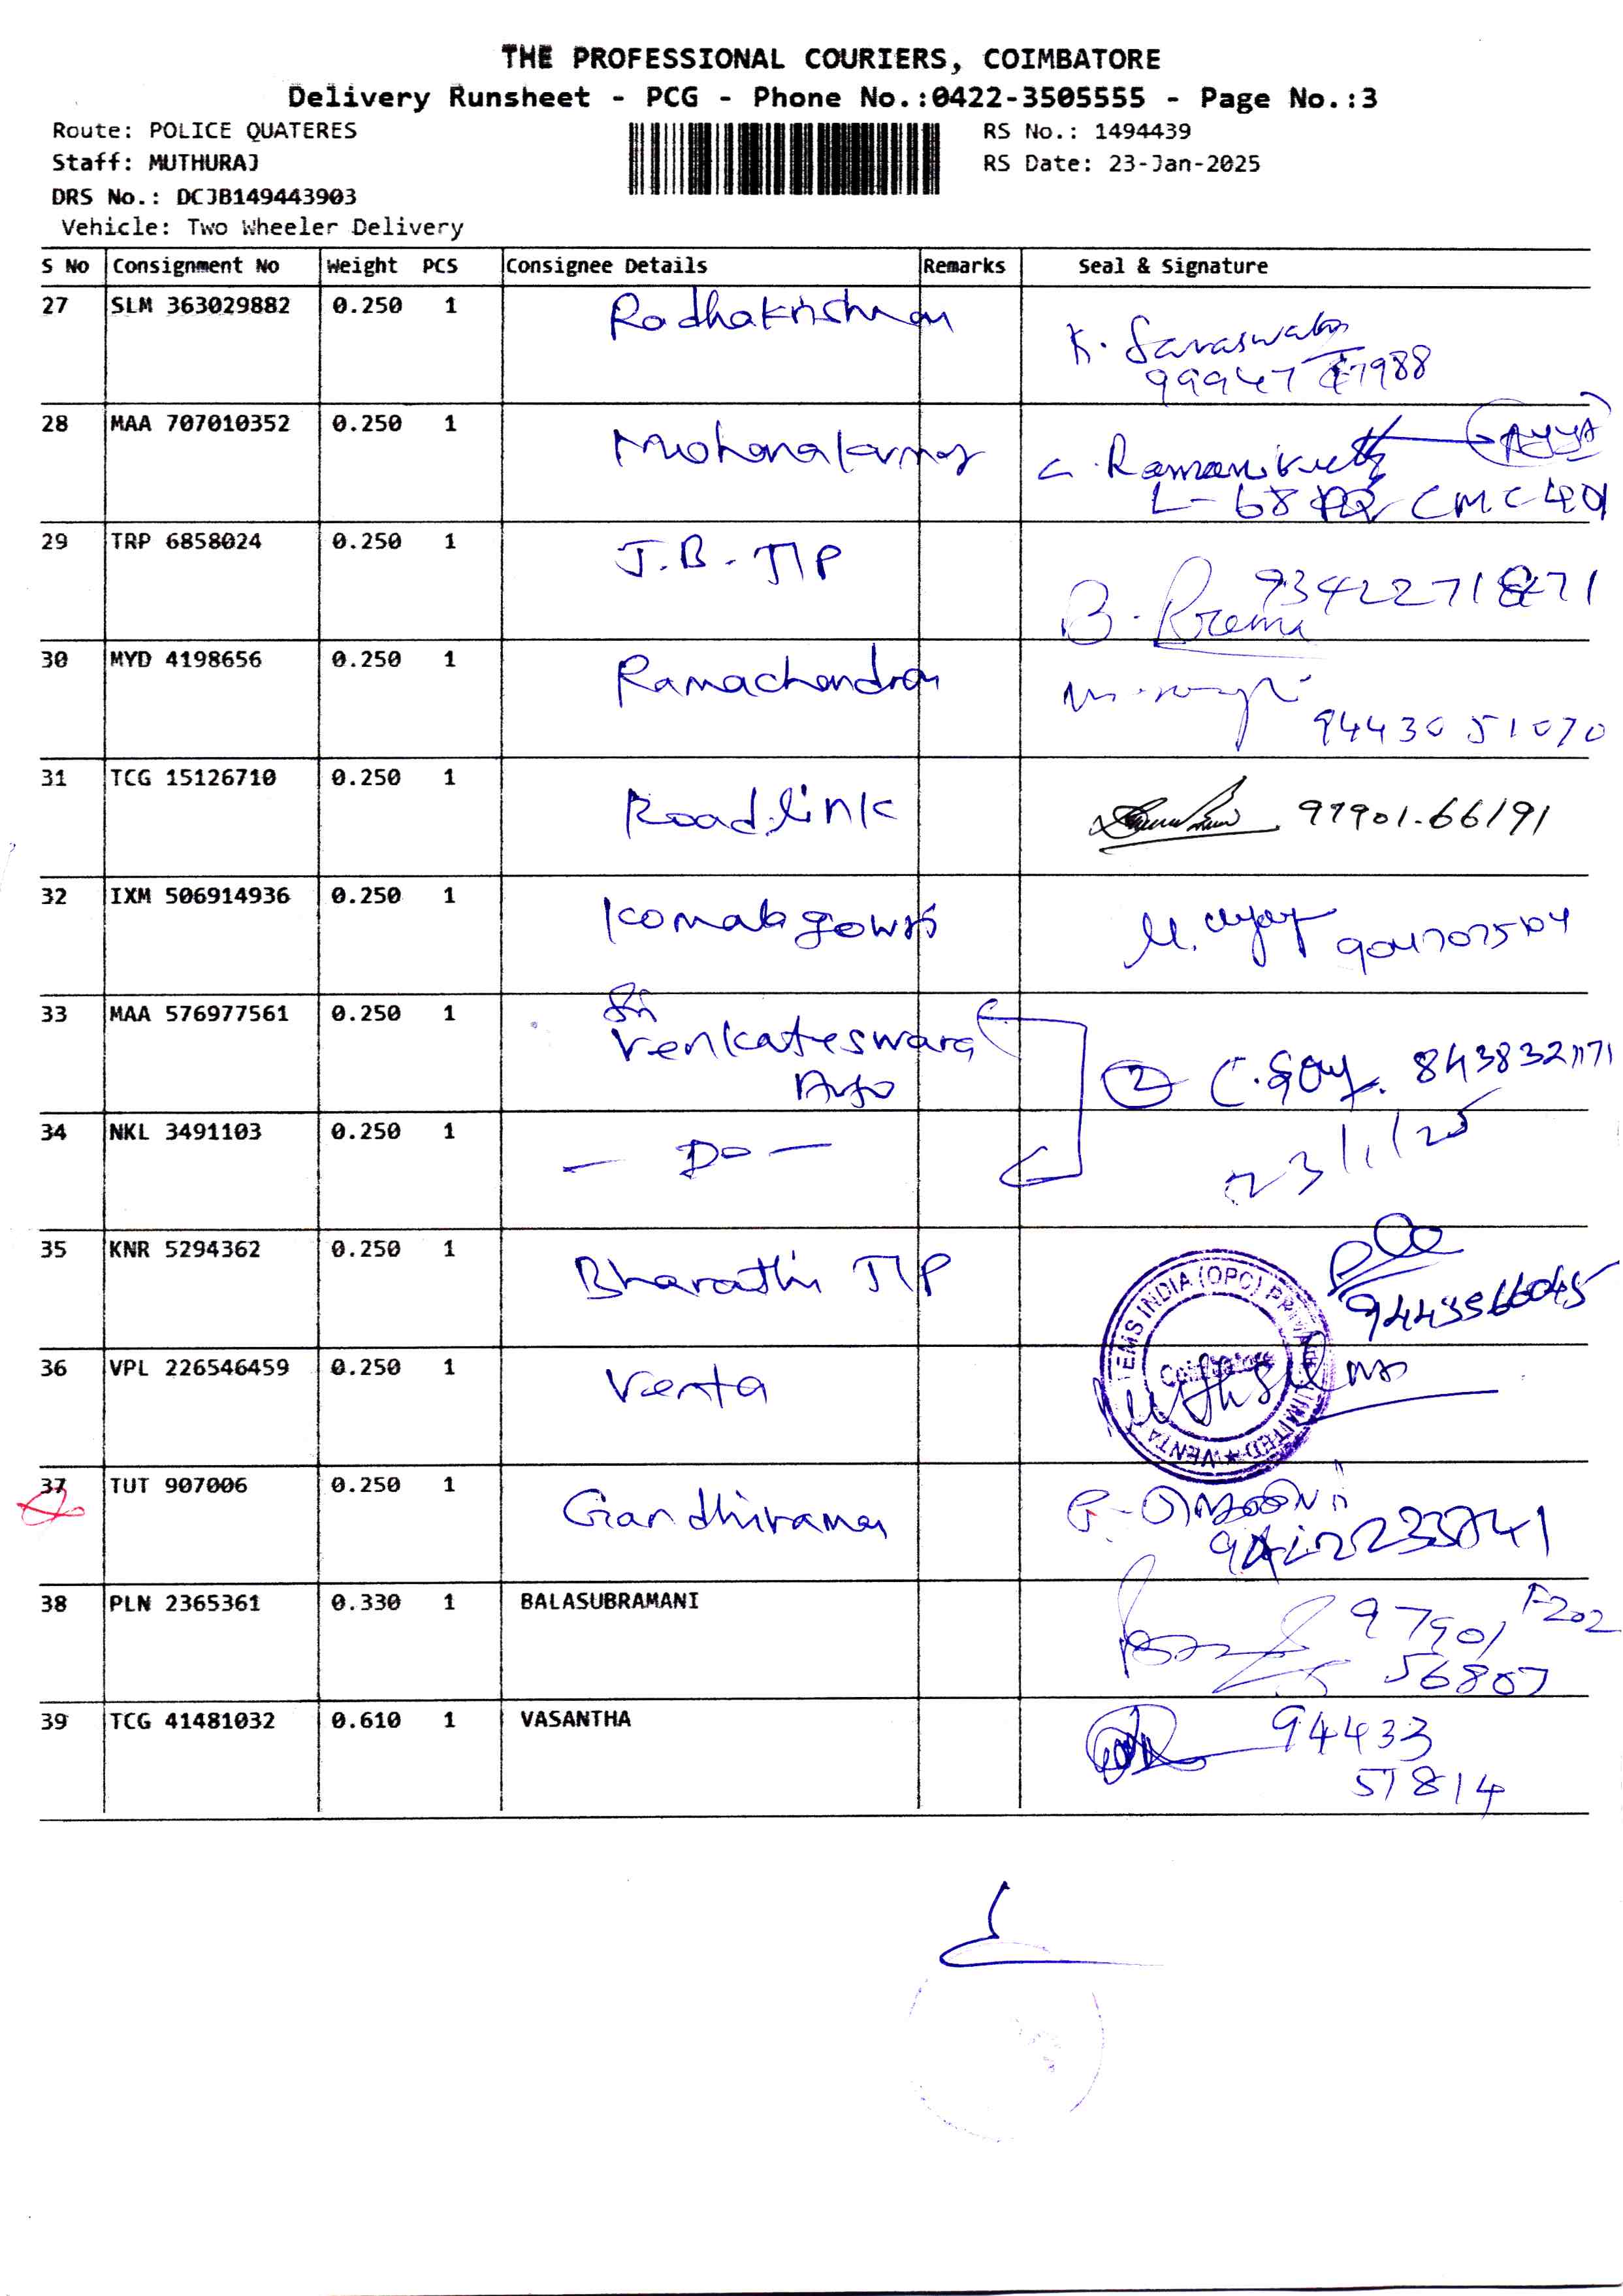 THE PROFESSIONAL COURIERS, COIMBATORE
Delivery Runsheet - PCG - Phone No.:0422-3505555 - Page No.:3
Route: POLICE QUATERES
RS No.: 1494439
Staff: MUTHURAJ
RS Date: 23-Jan-2025
DRS No.: DCJB149443903
Vehicle: Two Wheeler Delivery
S No Consignment No Weight PCS Consignee Details Remarks Seal & Signature
27 SLM 363029882 0.250 1 Radhakrishnan
K. Saraswathi
28 MAA 707010352 0.250 1
L-68 CMC
29 TRP 6858024 0.250 1 J.B. T/P
B. Prema
30 MYD 4198656 0.250 1 Ramachandran
94430 51070
31 TCG 15126710 0.250 1 Road link 97901.66191
32 IXM 506914936 0.250 1
33 MAA 576977561 0.250 1 Sri
Venkateswara
2
34 NKL 3491103 0.250 1 - Do -
23/1/25
35 KNR 5294362 0.250 1 Bharathi T/P
36 VPL 226546459 0.250 1 Venta
INDIA (OPC)
Coimbatore
37 TUT 907006 0.250 1
38 PLN 2365361 0.330 1 BALASUBRAMANI
97901 F202
56807
39 TCG 41481032 0.610 1 VASANTHA
94433
51814